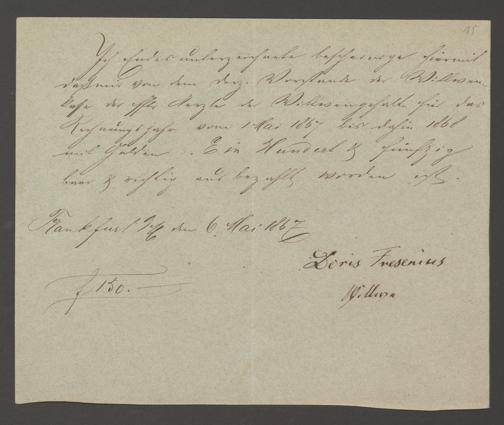 15
Ich endes unterzeichnete bescheinige hiermit
daß mir von dem derz. Vorstande der Wittwen-
kasse der Aerzte der Wittwengehalt für das
Rechnungsjahr vom 1 Mai 1867 bis dahin 1868
mit Gulden Ein Hundert & fünfzig
baar & richtig aus bezahlt worden ist.
Frankfurt a/M den 6. Mai 1867
Doris Fresenius
f 150.—
Wittwe